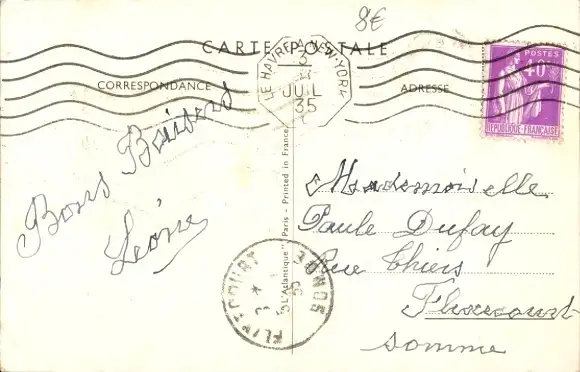 8€
CARTE POSTALE
CORRESPONDANCE
ADRESSE
LE HAVRE A NEW-YORK
3
JUIL
35
POSTES
40c
REPUBLIQUE-FRANÇAISE
Bons Baisers
Léone
"L'Atlantique", Paris - Printed in France
Mademoiselle
Paule Dufay
Rue Thiers
Flixecourt
Somme
FLIXECOURT
SOMME
35